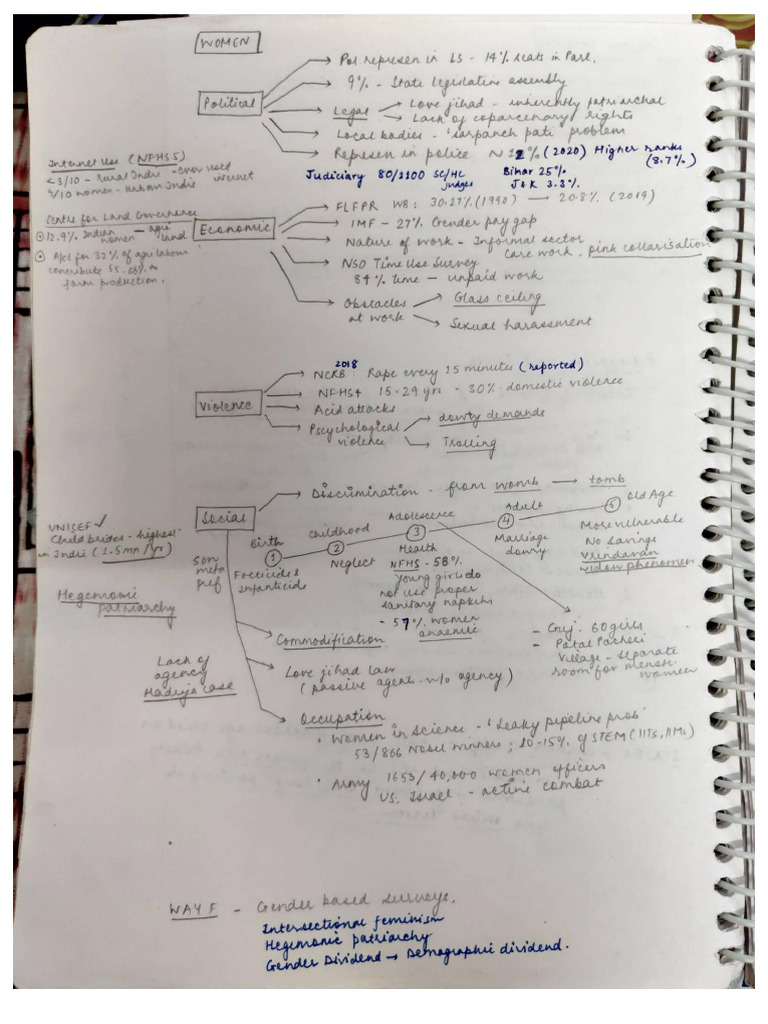 WOMEN
Political
Pol represen in LS - 14% seats in Parl.
9% - State legislative assembly
Legal
Love jihad - inherently patriarchal
Lack of coparcenary rights
Local bodies - 'sarpanch pati' problem
Represen in police ~ 12% (2020) Higher ranks (8.7%)
Bihar 25%
J&K 3.3%
Judiciary 80/1100 SC/HC judges
Internet Use (NFHS5)
<3/10 - Rural Indie - ever used internet
4/10 women - urban Indie
Centre for Land Governance
12.9% Indian women - agri land
A/c for 32% of agri labour
contribute 55.66% to
farm production.
Economic
FLFPR WB: 30.27% (1990) → 20.8% (2019)
IMF - 27% Gender pay gap
Nature of work - Informal sector
Care work, pink collarisation
NSO Time Use Survey
84% time - unpaid work
Obstacles
at work
Glass ceiling
Sexual harassment
Violence
NCRB 2018 Rape every 15 minutes (reported)
NFHS4 15-29 yrs - 30% domestic violence
Acid attacks
Pscychological
violence
dowry demands
Trolling
Social
Discrimination - from womb → tomb
UNICEF ✓
Child brides - highest
in Indie (1.5mn/yr)
Hegemonic
patriarchy
Son
meta
pref
Birth
1
Foeticide &
Infanticide
Childhood
2
Neglect
Adolescence
3
Health
NFHS - 58%
young girls do
not use proper
sanitary napkins
- 57% women
anaemic
Adult
4
Marriage
dowry
Old Age
5
More vulnerable
No savings
Vrindavan
widow phenomen
- Guj. 60 girls
- Patal
Village - separate
room for menst.
women
Commodification
Love jihad law
(passive agents w/o agency)
Lack of
agency
Hadiya case
Occupation
• Women in Science - 'Leaky pipeline prob'
53/866 Nobel winners; 10-15% of STEM (IITs, IIMs)
• Army 1653/40,000 women officers
US. Israel - active combat
WAY F - Gender based surveys.
Intersectional feminism
Hegemonic patriarchy
Gender Dividend → Demographic dividend.